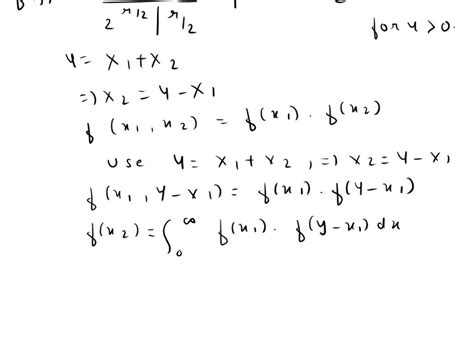 2^{r/2} Γ r/2
for y > 0.
Y = X₁ + X₂
=) X₂ = Y - X₁
f (x₁, x₂) = f(x₁) . f(x₂)
use Y = X₁ + X₂ , =) X₂ = Y - X₁
f(x₁, Y - x₁) = f(x₁) . f(Y - x₁)
f(x₂) = ∫₀^∞ f(x₁) . f(y - x₁) dx